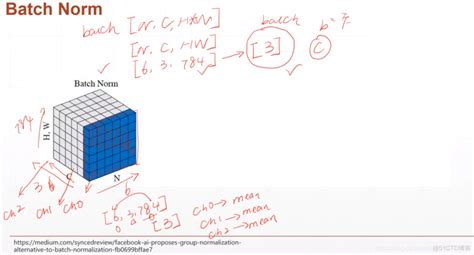 Batch Norm
batch [N, C, H*W]
batch
[N, C, HW]
[6, 3, 784] → [3]
C
Batch Norm
784
H, W
C
N
3
6
6
ch2
ch1
ch0
[6, 3, 784]
[3]
ch0 → mean
ch1 → mean
ch2 → mean
https://medium.com/syncedreview/facebook-ai-proposes-group-normalization-
alternative-to-batch-normalization-fb0699bffae7